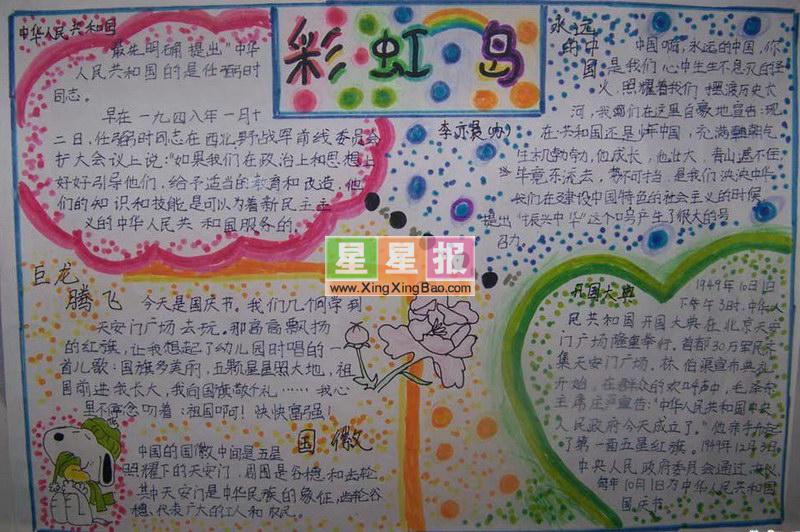 彩虹岛
中华人民共和国
最先明确提出"中华
人民共和国的是任弼时
同志。
早在一九四八年一月十
二日,任弼时同志在西北野战军前线委员会
扩大会议上说:"如果我们在政治上和思想上
好好引导他们,给予适当的教育和改造,他
们的知识和技能是可以为着新民主主
义的中华人民共和国服务的。
永远的中国
中国啊,永远的中国,你
是我们心中生生不息灭的圣
火,照耀着我们摆渡历史长
河,我们在这里自豪地宣告:现
在共和国还是少年中国,充满朝气
生机勃勃,他成长,他壮大,青山遮不住,
毕竟东流去,势不可挡,是我们泱泱中华
我们在建设中国特色的社会主义的时候
提出"振兴中华"这个口号产生了很大的号
召力。
星星报
www.XingXingBao.com
巨龙
腾飞
今天是国庆节。我们几个同学到
天安门广场去玩。那高高飘扬
的红旗,让我想起了幼儿园时唱的一
首儿歌:国旗多美丽,五颗星星照大地,祖
国前进我长大,我向国旗敬个礼……我心
里不停念叨着:祖国啊!快快富强!
国徽
中国的国徽中间是五星
照耀下的天安门,周围是谷穗和齿轮。
其中天安门是中华民族的象征,齿轮谷
穗,代表广大的工人和农民。
开国大典
1949年10月1日
下午3时,中华人
民共和国开国大典在北京天安
门广场隆重举行。首都30万军民齐
集天安门广场。林伯渠宣布典礼
开始。在群众的欢呼声中,毛泽东
主席庄严宣告:"中华人民共和国中央
人民政府今天成立了。"他亲手升起
了第一面五星红旗。1949年12月3日
中央人民政府委员会通过决议
每年10月1日为中华人民共和国
国庆节。